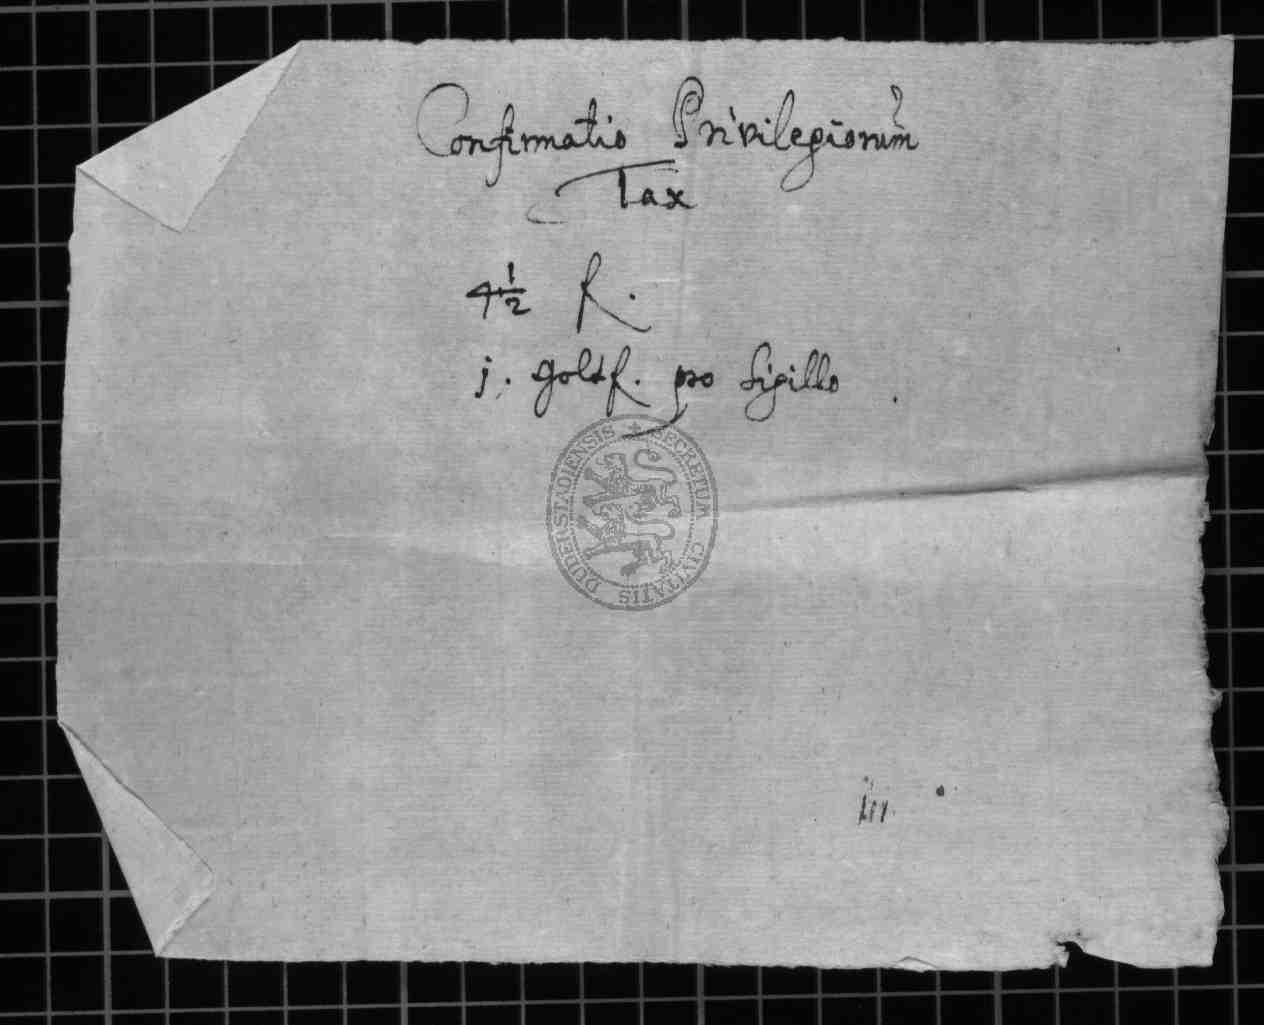 Confirmatio Privilegiorum
Tax
4 1/2 f.
j. goldf. pro sigillo
SECRETUM CIVITATIS DUDERSTADIENSIS